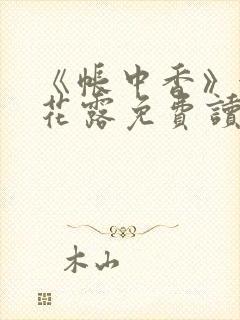 《帳中香》
花露免費讀
木山